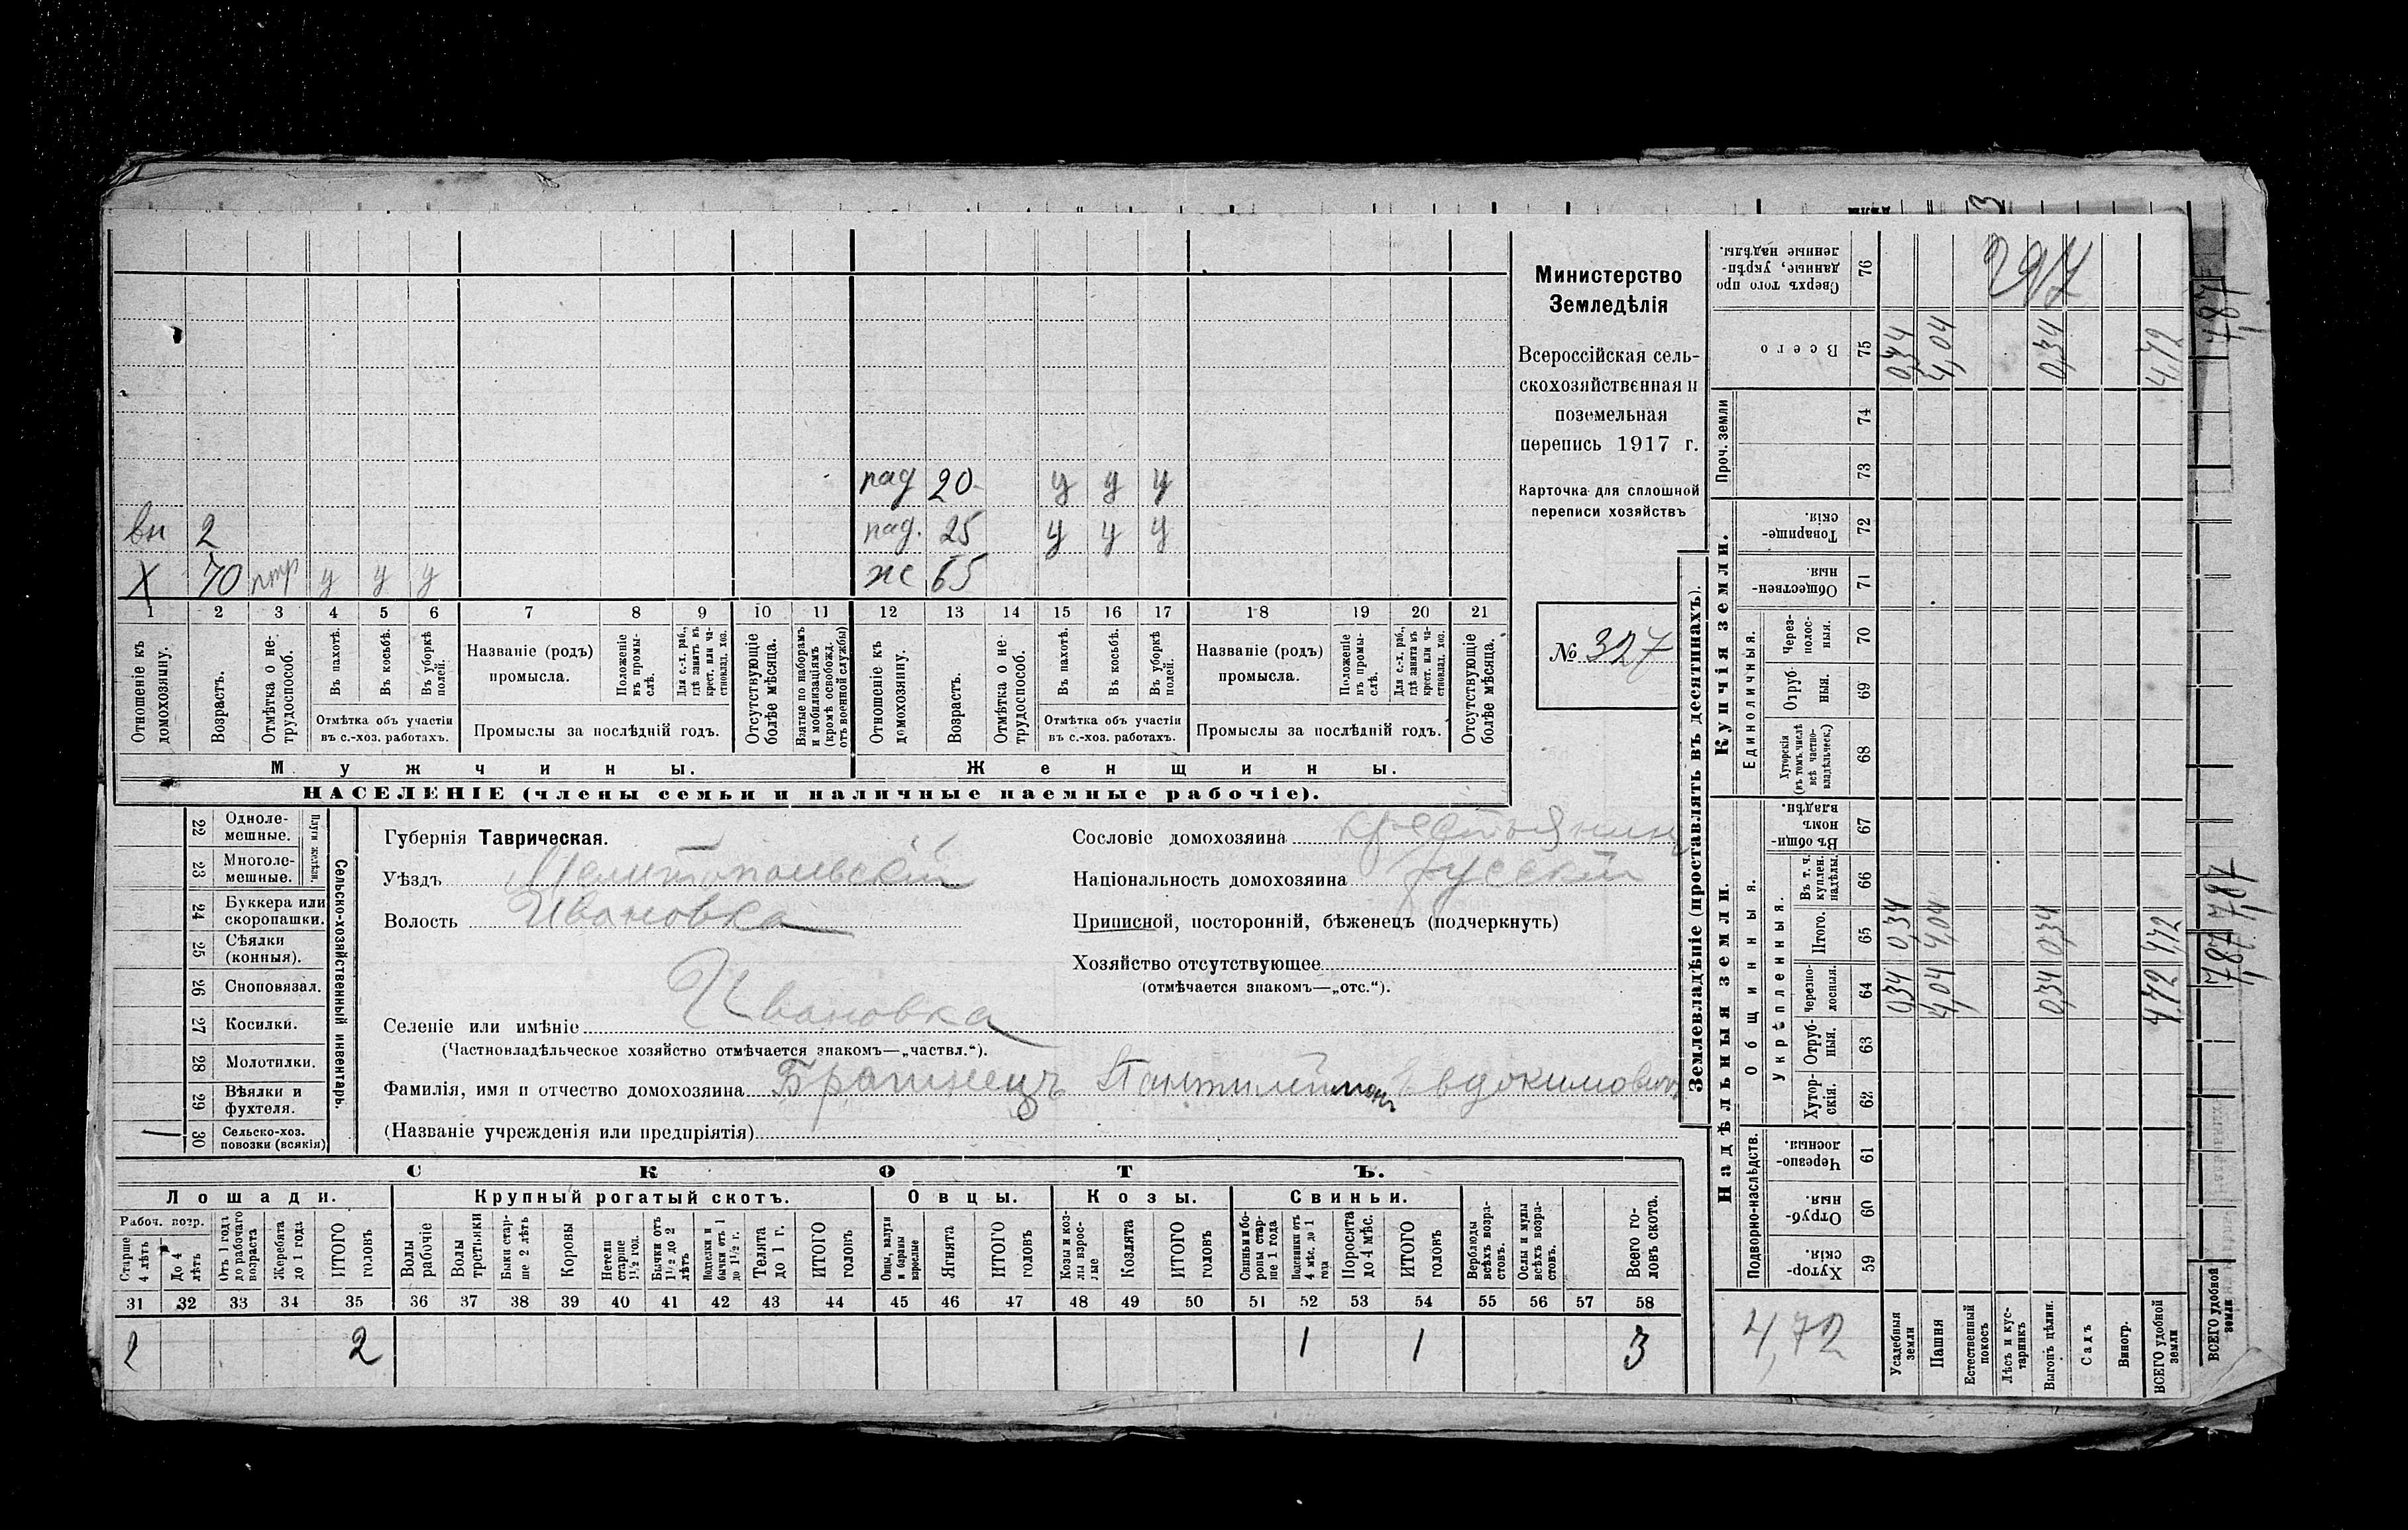 Министерство
Земледѣлія
Всероссійская сель-
скохозяйственная и
поземельная
перепись 1917 г.
Карточка для сплошной
переписи хозяйствъ
№ 327
пад 20 у у у
вн 2 пад. 25 у у у
Х 70 у у у же 65
1 2 3 4 5 6 7 8 9 10 11 12 13 14 15 16 17 18 19 20 21
Отношеніе къ домохозяину.
Возрастъ.
Отмѣтка о не-трудоспособ.
Въ пахотѣ.
Въ косьбѣ.
Въ уборкѣ полей.
Отмѣтка объ участіи
въ с.-хоз. работахъ.
Названіе (родъ)
промысла.
Положеніе въ промы-слѣ.
Для с.-х. раб., гдѣ занятъ въ крест. или ча-стновлад. хоз.
Промыслы за послѣдній годъ.
Отсутствующіе болѣе мѣсяца.
Взятые по наборамъ и мобилизаціямъ (кромѣ освобожд. отъ военной службы)
Отношеніе къ домохозяину.
Возрастъ.
Отмѣтка о не-трудоспособ.
Въ пахотѣ.
Въ косьбѣ.
Въ уборкѣ полей.
Отмѣтка объ участіи
въ с.-хоз. работахъ.
Названіе (родъ)
промысла.
Положеніе въ промы-слѣ.
Для с.-х. раб., гдѣ занята въ крест. или ча-стновлад. хоз.
Промыслы за послѣдній годъ.
Отсутствующіе болѣе мѣсяца.
Мужчины. Женщины.
НАСЕЛЕНІЕ (члены семьи и наличные наемные рабочіе).
Сельско-хозяйственный инвентарь.
Плуги желѣзн.
22 Одноле-мешные.
23 Многоле-мешные.
24 Буккера или скоропашки.
25 Сѣялки (конныя).
26 Сноповязал.
27 Косилки.
28 Молотилки.
29 Вѣялки и фухтеля.
— 30 Сельско-хоз. повозки (всякія)
Губернія Таврическая.
Уѣздъ Мелитопольскій
Волость Ивановка
Селеніе или имѣніе Ивановка
(Частновладѣльческое хозяйство отмѣчается знакомъ—„частвл.“).
Фамилія, имя и отчество домохозяина Братнецъ Пантилеймонъ Евдокимович
(Названіе учрежденія или предпріятія)
Сословіе домохозяина крестьянин
Національность домохозяина русскій
Приписной, посторонній, бѣженецъ (подчеркнуть)
Хозяйство отсутствующее
(отмѣчается знакомъ—„отс.“).
СКОТЪ.
Лошади. Крупный рогатый скотъ. Овцы. Козы. Свиньи.
Рабоч. возр.
Старше 4 лѣтъ
До 4 лѣтъ
Отъ 1 года до рабочаго возраста
Жеребята до 1 года
ИТОГО головъ
Волы рабочіе
Волы третьяки
Быки стар-ше 2 лѣтъ
Коровы
Нетели старше 1½ год.
Бычки отъ 1½ до 2 лѣтъ
Подтелки и бычки отъ 1 до 1½ г.
Телята до 1 г.
ИТОГО головъ
Овцы, валухи и бараны взрослые
Ягнята
ИТОГО головъ
Козы и коз-лы взрос-лые
Козлята
ИТОГО головъ
Свиньи и бо-ровы стар-ше 1 года
Подсвинки отъ 4 мѣс. до 1 года
Поросята до 4 мѣс.
ИТОГО головъ
Верблюды всѣхъ возра-стовъ.
Ослы и мулы всѣхъ возра-стовъ.
Всего го-ловъ скота.
31 32 33 34 35 36 37 38 39 40 41 42 43 44 45 46 47 48 49 50 51 52 53 54 55 56 57 58
2 2 1 1 3
Землевладѣніе (проставлять въ десятинахъ).
Надѣльныя земли. Купчія земли. Проч. земли
Подворно-наслѣдств.
Общинныя.
Укрѣпленныя.
Единоличныя.
59 Хутор-скія.
60 Отруб-ныя.
61 Черезпо-лосныя.
62 Хутор-скія.
63 Отруб-ныя.
64 Черезпо-лосныя.
65 Итого.
66 Въ т. ч. куплен. надѣлы.
67 Въ общи-номъ владѣн.
68 Хуторскія (въ томъ числѣ всѣ частно-владѣльческ.)
69 Отруб-ныя.
70 Через-полос-ныя.
71 Обществен-ныя.
72 Товарище-скія.
73
74
75 Всего
76 Сверхъ того про-данные, укрѣп-ленные надѣлы.
Усадебныя земли 0,34 0,34 0,34
Пашня 4,04 4,04 4,04
Естественный покосъ
Лѣсъ и кус-тарникъ
Выгонъ цѣлин. 0,34 0,34 0,34
Садъ
Виногр.
ВСЕГО удобной земли 4,72 4,72 4,72
4,72
297
ВСЕГО удобной земли
7,87 7,87 7,87